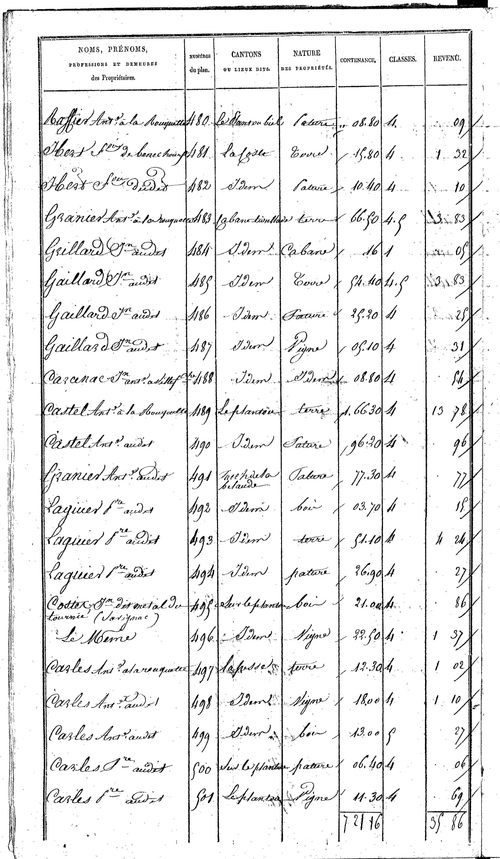 NOMS, PRÉNOMS, PROFESSIONS ET DEMEURES des Propriétaires. NUMÉROS du plan. CANTONS OU LIEUX DITS. NATURE DES PROPRIÉTÉS. CONTENANCE. CLASSES. REVENU.
Raffier Ant. à la Rouquette 480 Pature 08.80 4. 09
Hert 481 Terre 15.80 4 1 32
Hert dudit 482 Idem Pature 10.40 4 10
Granier Ant. à la rouquette 483 terre 66.50 4.5 3 83
Gaillard Jn audit 484 Idem Cabane 16 1 05
Gaillard Jn audit 485 Idem Terre 54.40 4.5 3 83
Gaillard Jn audit 486 Idem Pature 25.20 4 25
Gaillard Jn audit 487 Idem Vigne 05.10 4 31
Carcenac Jn 488 Idem Idem 08.80 4 54
Castel Ant. à la Rouquette 489 Le plantou terre 1.66.30 4 13 78
Castel Ant. audit 490 Idem Pature 96.20 4 96
Granier Ant. audit 491 Pature 77.30 4 77
Laguier Pre audit 492 Idem boix 03.70 4 15
Laguier Pre audit 493 Idem terre 51.10 4 4 24
Laguier Pre audit 494 Idem pature 26.90 4 27
Costes Jn 495 Sur le plantou boix 21.00 4. 86
tournié (Savignac)
Le Même 496 Idem Vigne 22.50 4 1 37
Carles Ant. à la rouquette 497 terre 12.30 4 1 02
Carles Ant. audit 498 Idem Vigne 18.00 4 1 10
Carles Ant. audit 499 Idem boix 13.00 5 27
Carles Pre audit 500 Sur le plantou pature 06.40 4 06
Carles Pre audit 501 Le plantou Vigne 11.30 4 69
7 21 16 35 86